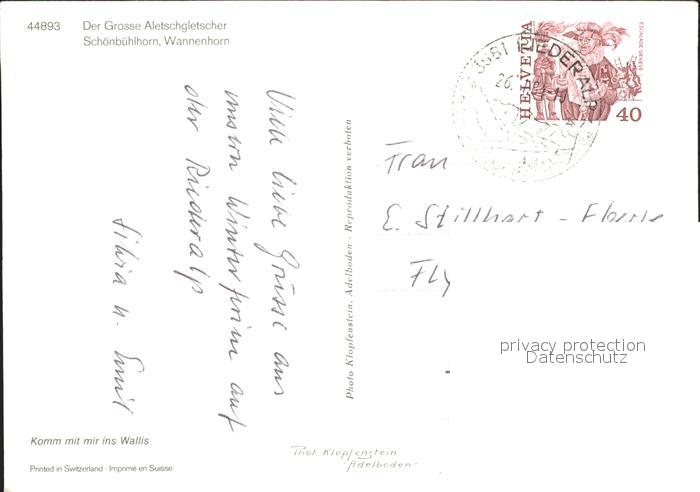 44893 Der Grosse Aletschgletscher
Schönbühlhorn, Wannenhorn
Viele liebe Grüsse aus
unsren Winterferien auf
der Riederalp
Silvia u. Emil
Komm mit mir ins Wallis
Printed in Switzerland - Imprimé en Suisse
Photo Klopfenstein, Adelboden - Reproduktion verboten
Phot. Klopfenstein
Adelboden
3981 RIEDERALP
26.
HELVETIA
ESCALADE GENÈVE
40
Frau
E. Stillhart - Eberle
Fly
privacy protection
Datenschutz